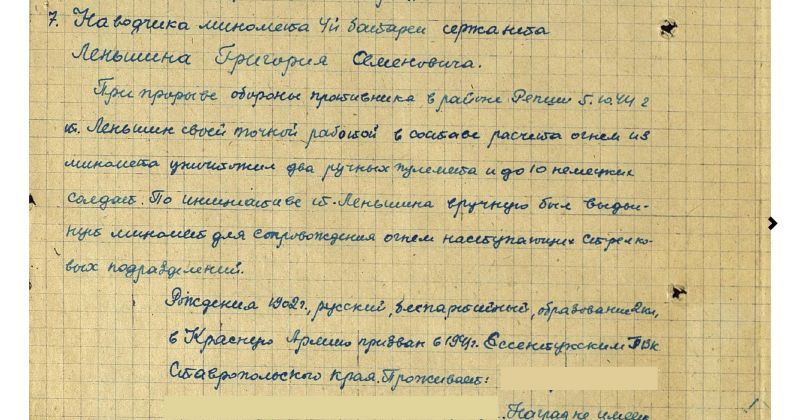 7. Наводчика миномета 4й батареи сержанта
Леньшина Григория Семеновича.
При прорыве обороны противника в районе Репши 5.10.44 г
т. Леньшин своей точной работой в составе расчета огнем из
миномета уничтожил два ручных пулемета и до 10 немецких
солдат. По инициативе т. Леньшина вручную был выдви-
нут миномет для сопровождения огнем наступающих стрелко-
вых подразделений.
Рождения 1902 г., русский, беспартийный, образование 2 кл,
в Красную Армию призван в 1941г. Ессентукским РВК
Ставропольского края. Проживает:
. Наград не имеет